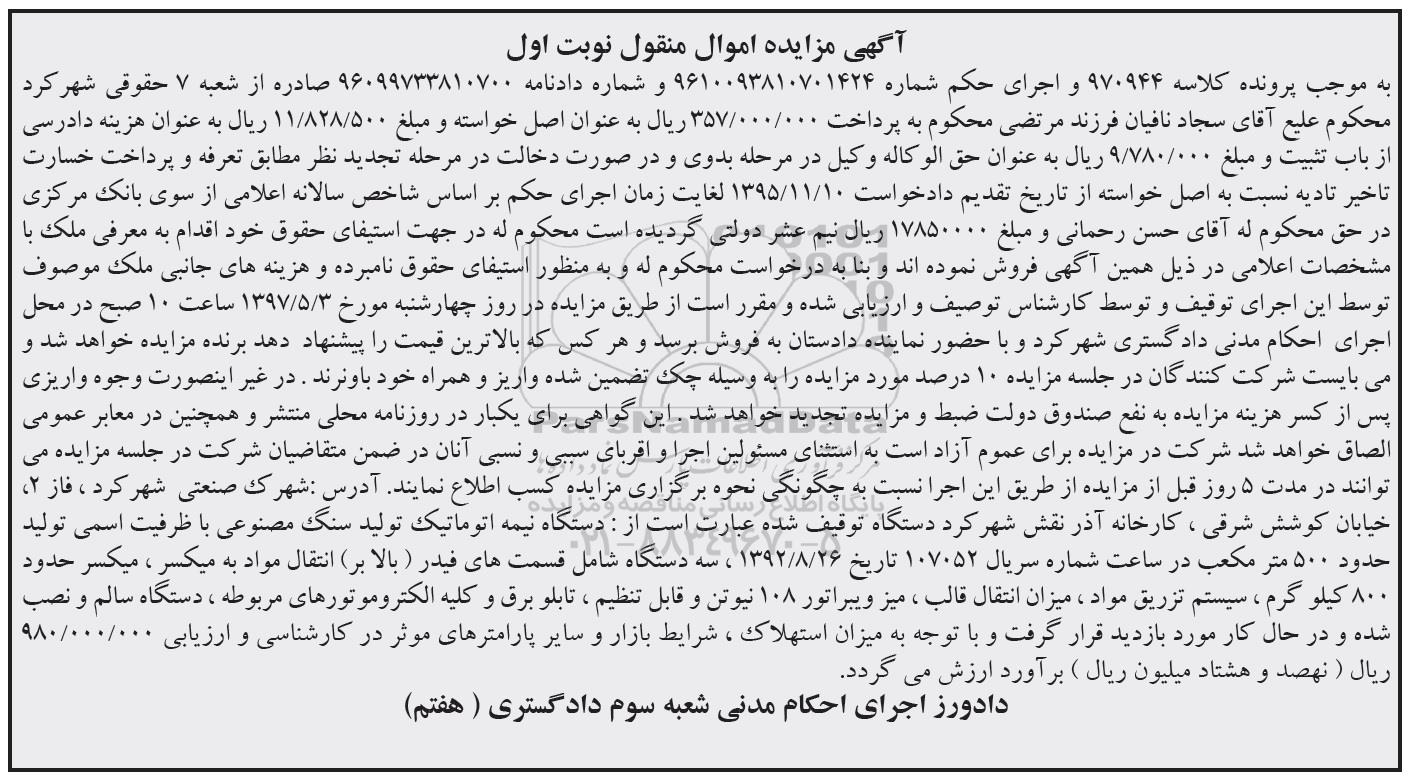 آگهی مزایده اموال منقول نوبت اول
به موجب پرونده کلاسه ۹۷۰۹۴۴ و اجرای حکم شماره ۹۶۱۰۰۹۳۸۱۰۷۰۱۴۲۴ و شماره دادنامه ۹۶۰۹۹۷۳۳۸۱۰۷۰۰ صادره از شعبه ۷ حقوقی شهرکرد
محکوم علیع آقای سجاد نافیان فرزند مرتضی محکوم به پرداخت ۳۵۷/۰۰۰/۰۰۰ ریال به عنوان اصل خواسته و مبلغ ۱۱/۸۲۸/۵۰۰ ریال به عنوان هزینه دادرسی
از باب تثبیت و مبلغ ۹/۷۸۰/۰۰۰ ریال به عنوان حق الوکاله وکیل در مرحله بدوی و در صورت دخالت در مرحله تجدید نظر مطابق تعرفه و پرداخت خسارت
تاخیر تادیه نسبت به اصل خواسته از تاریخ تقدیم دادخواست ۱۳۹۵/۱۱/۱۰ لغایت زمان اجرای حکم بر اساس شاخص سالانه اعلامی از سوی بانک مرکزی
در حق محکوم له آقای حسن رحمانی و مبلغ ۱۷۸۵۰۰۰۰ ریال نیم عشر دولتی گردیده است محکوم له در جهت استیفای حقوق خود اقدام به معرفی ملک با
مشخصات اعلامی در ذیل همین آگهی فروش نموده اند و بنا به درخواست محکوم له و به منظور استیفای حقوق نامبرده و هزینه های جانبی ملک موصوف
توسط این اجرای توقیف و توسط کارشناس توصیف و ارزیابی شده و مقرر است از طریق مزایده در روز چهارشنبه مورخ ۱۳۹۷/۵/۳ ساعت ۱۰ صبح در محل
اجرای احکام مدنی دادگستری شهرکرد و با حضور نماینده دادستان به فروش برسد و هر کس که بالاترین قیمت را پیشنهاد دهد برنده مزایده خواهد شد و
می بایست شرکت کنندگان در جلسه مزایده ۱۰ درصد مورد مزایده را به وسیله چک تضمین شده واریز و همراه خود باونرند . در غیر اینصورت وجوه واریزی
پس از کسر هزینه مزایده به نفع صندوق دولت ضبط و مزایده تجدید خواهد شد . این گواهی برای یکبار در روزنامه محلی منتشر و همچنین در معابر عمومی
الصاق خواهد شد شرکت در مزایده برای عموم آزاد است به استثنای مسئولین اجرا و اقربای سببی و نسبی آنان در ضمن متقاضیان شرکت در جلسه مزایده می
توانند در مدت ۵ روز قبل از مزایده از طریق این اجرا نسبت به چگونگی نحوه برگزاری مزایده کسب اطلاع نمایند. آدرس :شهرک صنعتی شهرکرد ، فاز ۲،
خیابان کوشش شرقی ، کارخانه آذر نقش شهرکرد دستگاه توقیف شده عبارت است از : دستگاه نیمه اتوماتیک تولید سنگ مصنوعی با ظرفیت اسمی تولید
حدود ۵۰۰ متر مکعب در ساعت شماره سریال ۱۰۷۰۵۲ تاریخ ۱۳۹۲/۸/۲۶ ، سه دستگاه شامل قسمت های فیدر ( بالا بر) انتقال مواد به میکسر ، میکسر حدود
۸۰۰ کیلو گرم ، سیستم تزریق مواد ، میزان انتقال قالب ، میز ویبراتور ۱۰۸ نیوتن و قابل تنظیم ، تابلو برق و کلیه الکتروموتورهای مربوطه ، دستگاه سالم و نصب
شده و در حال کار مورد بازدید قرار گرفت و با توجه به میزان استهلاک ، شرایط بازار و سایر پارامترهای موثر در کارشناسی و ارزیابی ۹۸۰/۰۰۰/۰۰۰
ریال ( نهصد و هشتاد میلیون ریال ) برآورد ارزش می گردد.
دادورز اجرای احکام مدنی شعبه سوم دادگستری ( هفتم)
ParsNamadData
پایگاه اطلاع رسانی مناقصه و مزایده
۰۲۱-۸۸۳۴۹۶۷۰-۵